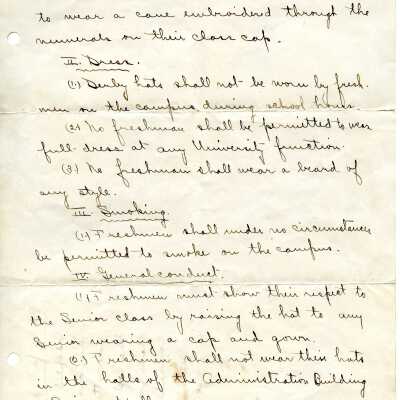 to wear a cane embroidered through the
numerals on their class cap.
II. Dress.
(1) Derby hats shall not be worn by fresh-
men on the campus during school hours.
(2) No freshman shall be permitted to wear
full dress at any University function.
(3) No freshman shall wear a beard of
any style.
III Smoking.
(1) Freshmen shall under no circumstances
be permitted to smoke on the campus.
IV General conduct.
(1) Freshmen must show their respect to
the Senior class by raising the hat to any
Senior wearing a cap and gown.
(2) Freshmen shall not wear their hats
in the halls of the Administration Building